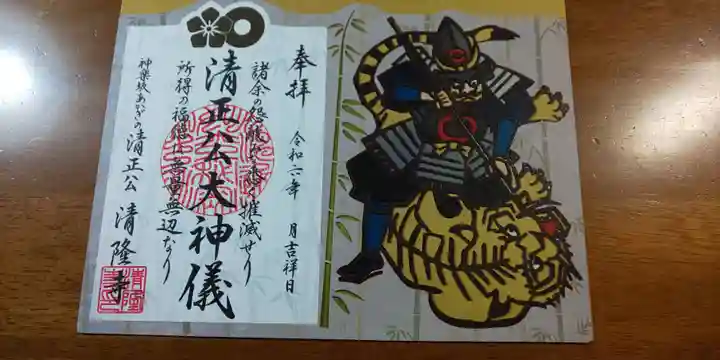 奉拝
令和六年 月吉祥日
諸余の怨敵みな悉く摧滅せり
清正公大神儀
所得の福徳は無量無辺なり
神楽坂あかぎの清正公
清隆寺